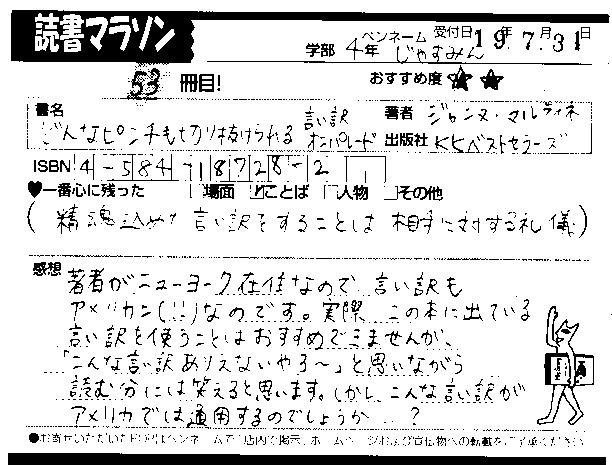 読書マラソン
学部 4年 ペンネーム じゃすみん 受付日 19年 7月 31日
53 冊目!
おすすめ度 ★ ★
書名 どんなピンチも切り抜けられる 言い訳オンパレード
著者 ジョンヌ・マルティネ
出版社 KKベストセラーズ
ISBN 4-584-18728-2
♥一番心に残った □場面 ☑ことば □人物 □その他
( 精魂込めた 言い訳をすることは 相手に対する礼儀 )
感想
著者がニューヨーク在住なので、言い訳も
アメリカン(!!)なのです。実際、この本に出ている
言い訳を使うことはおすすめできませんが、
「こんな言い訳ありえないやろ〜」と思いながら
読む分には笑えると思います。しかし、こんな言い訳が
アメリカでは通用するのでしょうか…?
●お寄せいただいたPOPはペンネームで店内で掲示、ホームページおよび宣伝物への転載をご了承ください